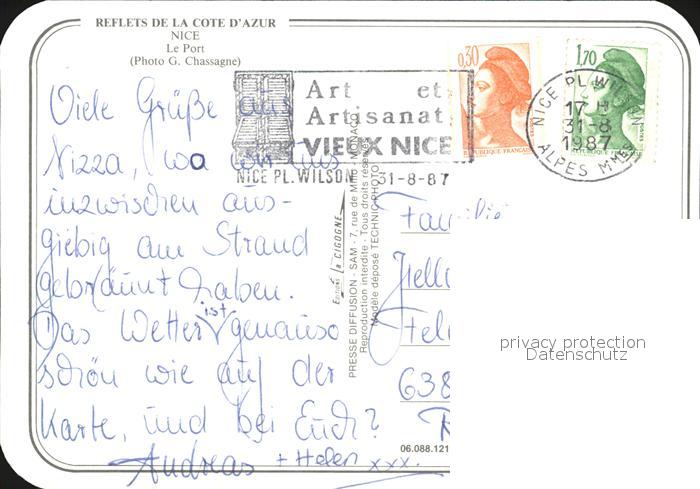 REFLETS DE LA COTE D'AZUR
NICE
Le Port
(Photo G. Chassagne)
0,30
1,70
REPUBLIQUE FRANÇAISE
Art et
Artisanat
VIEUX NICE
NICE PL. WILSON 31-8-87
NICE PL. WILSON
17 H
31-8
1987
ALPES MMES
Viele Grüße aus
Nizza, wo wir uns
inzwischen aus-
giebig am Strand
gebräunt haben.
Das Wetter ist genauso
schön wie auf der
Karte, und bei Euch?
Andreas + Helen xxx.
Editions La CIGOGNE
PRESSE DIFFUSION - SAM - 7, rue de Millo - MONACO
Reproduction interdite - Tous droits réservés
Modèle déposé TECHNIC PHOTO
Familie
638
06.088.121
privacy protection
Datenschutz